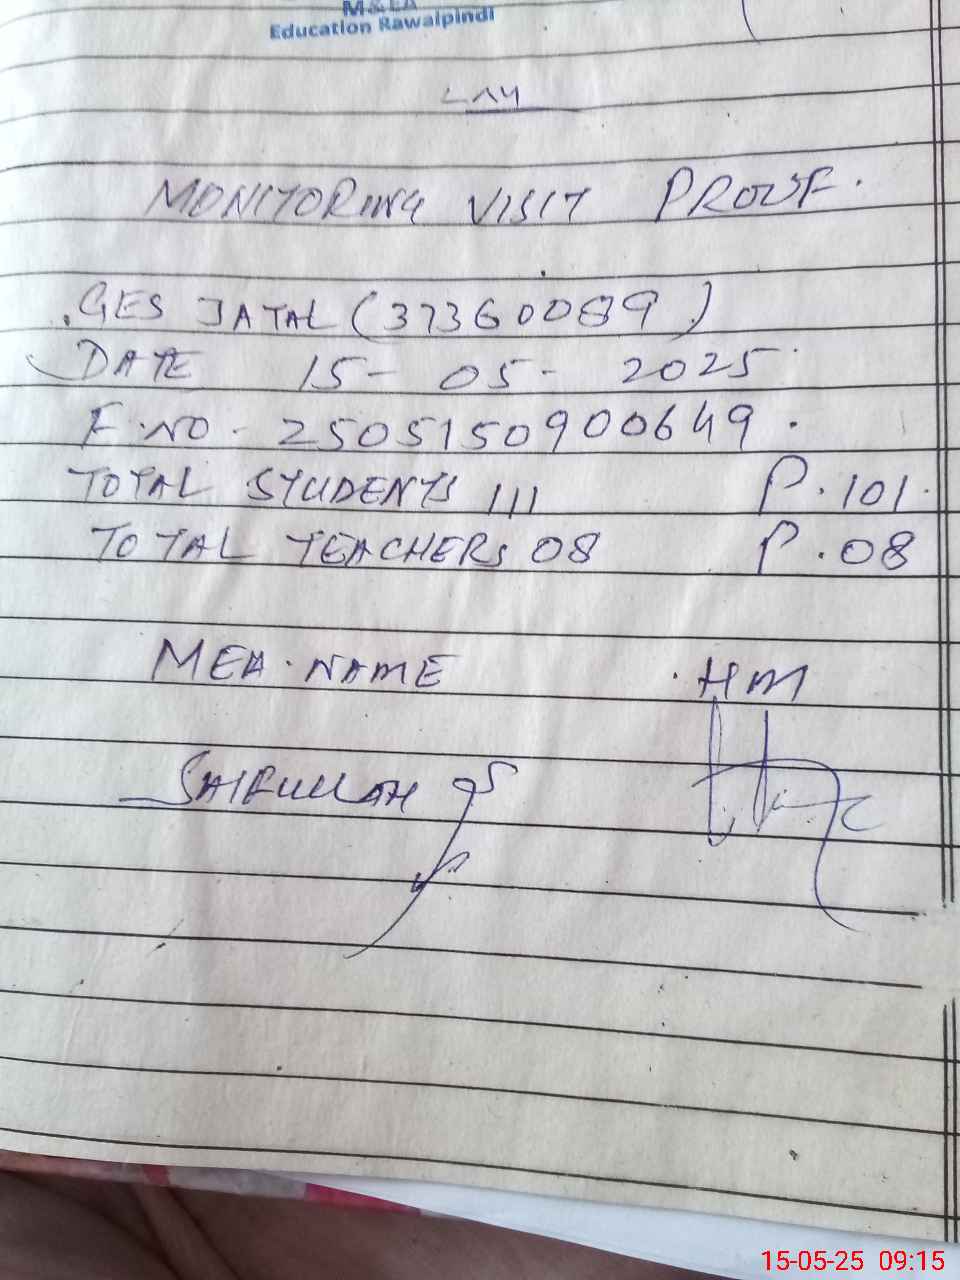 M&EA
Education Rawalpindi
MONITORING VISIT PROOF.
GES JATAL (37360089)
DATE 15-05-2025
F.NO. 2505150900649.
TOTAL STUDENTS 111 P.101.
TOTAL TEACHERS 08 P.08
MEA. NAME HM
SAIFULLAH
15-05-25 09:15